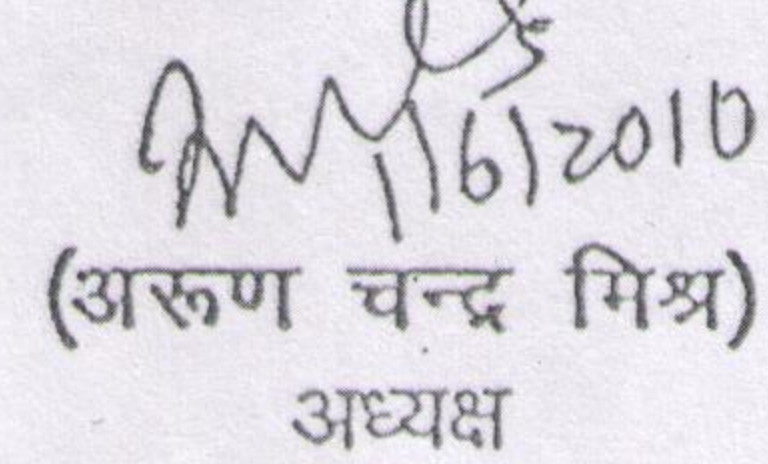 1/6/2010
(अरूण चन्द्र मिश्र)
अध्यक्ष